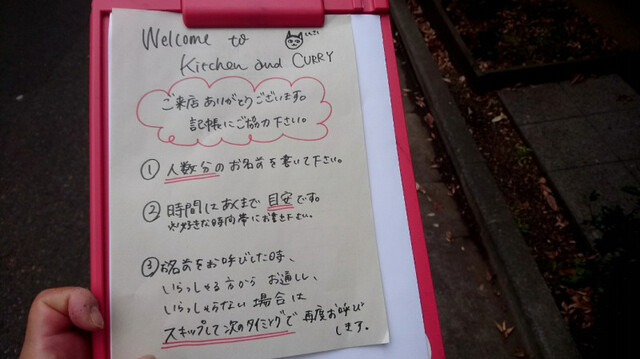 Welcome to
Kitchen and CURRY
ご来店ありがとうございます。
記帳にご協力下さい。
① 人数分のお名前を書いて下さい。
② 時間はあくまで目安です。
※お好きな時間帯にお書き下さい。
③ お名前をお呼びした時、
いらっしゃる方からお通しし、
いらっしゃらない場合は
スキップして次のタイミングで再度お呼び
します。